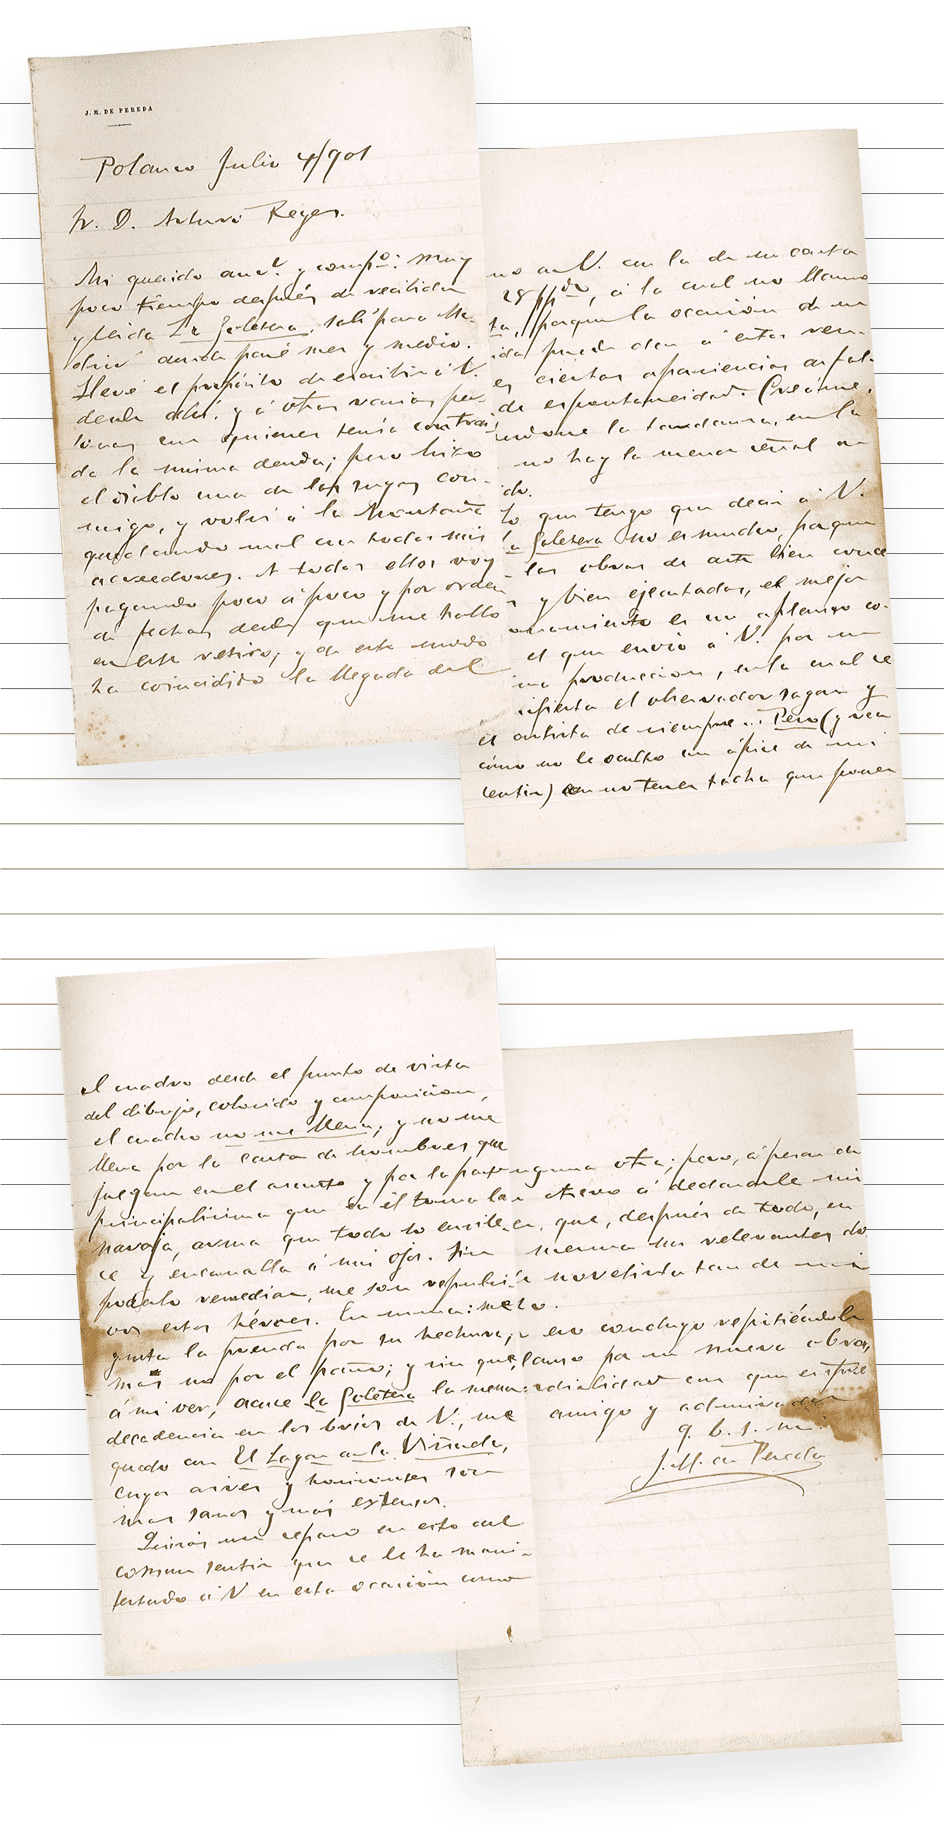 J. M. DE PEREDA
Polanco Julio 4/901
Sr. D. Arturo Reyes.
Mi querido am.º y comp.º: muy
poco tiempo después de recibida
y leida La Goletera, salí para Ma-
drid donde pasé mes y medio.
Llevé el propósito de escribir á V.
desde allí y á otras varias per-
sonas con quienes tenía contrai-
da la misma deuda; pero hizo
el diablo una de las suyas con-
migo, y volví á la Montaña
quedando mal con todos mis
acreedores. A todos ellos voy
pagando poco á poco y por orden
de fechas desde que me hallo
en este retiro, y de este modo
ha coincidido la llegada del
no á V. con la de su carta
28 pp.do, á la cual no llamo
ta, porque la ocasión de su
ida puede dar á estos ren-
es ciertas apariencias de fal-
de espontaneidad. Créame,
perdone la tardanza, en la
no hay la menor señal de
ido.
lo que tengo que decir á V.
La Goletera no es mucho, porque
las obras de arte bien conce
y bien ejecutadas, el mejor
es un aplauso co-
el que envío á V. por su
produccion, en la cual se
ifiesta el observador sagaz y
el artista de siempre... Pero (y vea
cómo no le oculto un ápice de mi
sentir) con no tener tacha que poner
al cuadro desde el punto de vista
del dibujo, colorido y composicion,
el cuadro no me llena; y no me
llena por la casta de hombres que
juegan en el asunto y por la parte
principalísima que en él toma la
navaja, arma que todo lo envile-
ce y encanalla á mis ojos. Sin
poderlo remediar, me son repulsi-
vos estos héroes. En suma: me
gusta la prenda por su hechura;
mas no por el paño; y sin que,
á mi ver, acuse la Goletera la menor
decadencia en los bríos de V., me
quedo con El Lagar de la Viñuela,
cuyos aires y horizontes son
mas sanos y más extensos.
Quizás un reparo en esto del
comun sentir que se le ha mani-
festado á V en esta ocasión como
nguna otra; pero, á pesar de
atrevo á declararle mi
que, después de todo, en
merma sus relevantes do
novelista tan de mi
to.
eso concluyo repitiéndole
lauso por su nueva obra,
rdialidad con que es suyo
amigo y admirador
q. b. s. m.
J. M. de Pereda